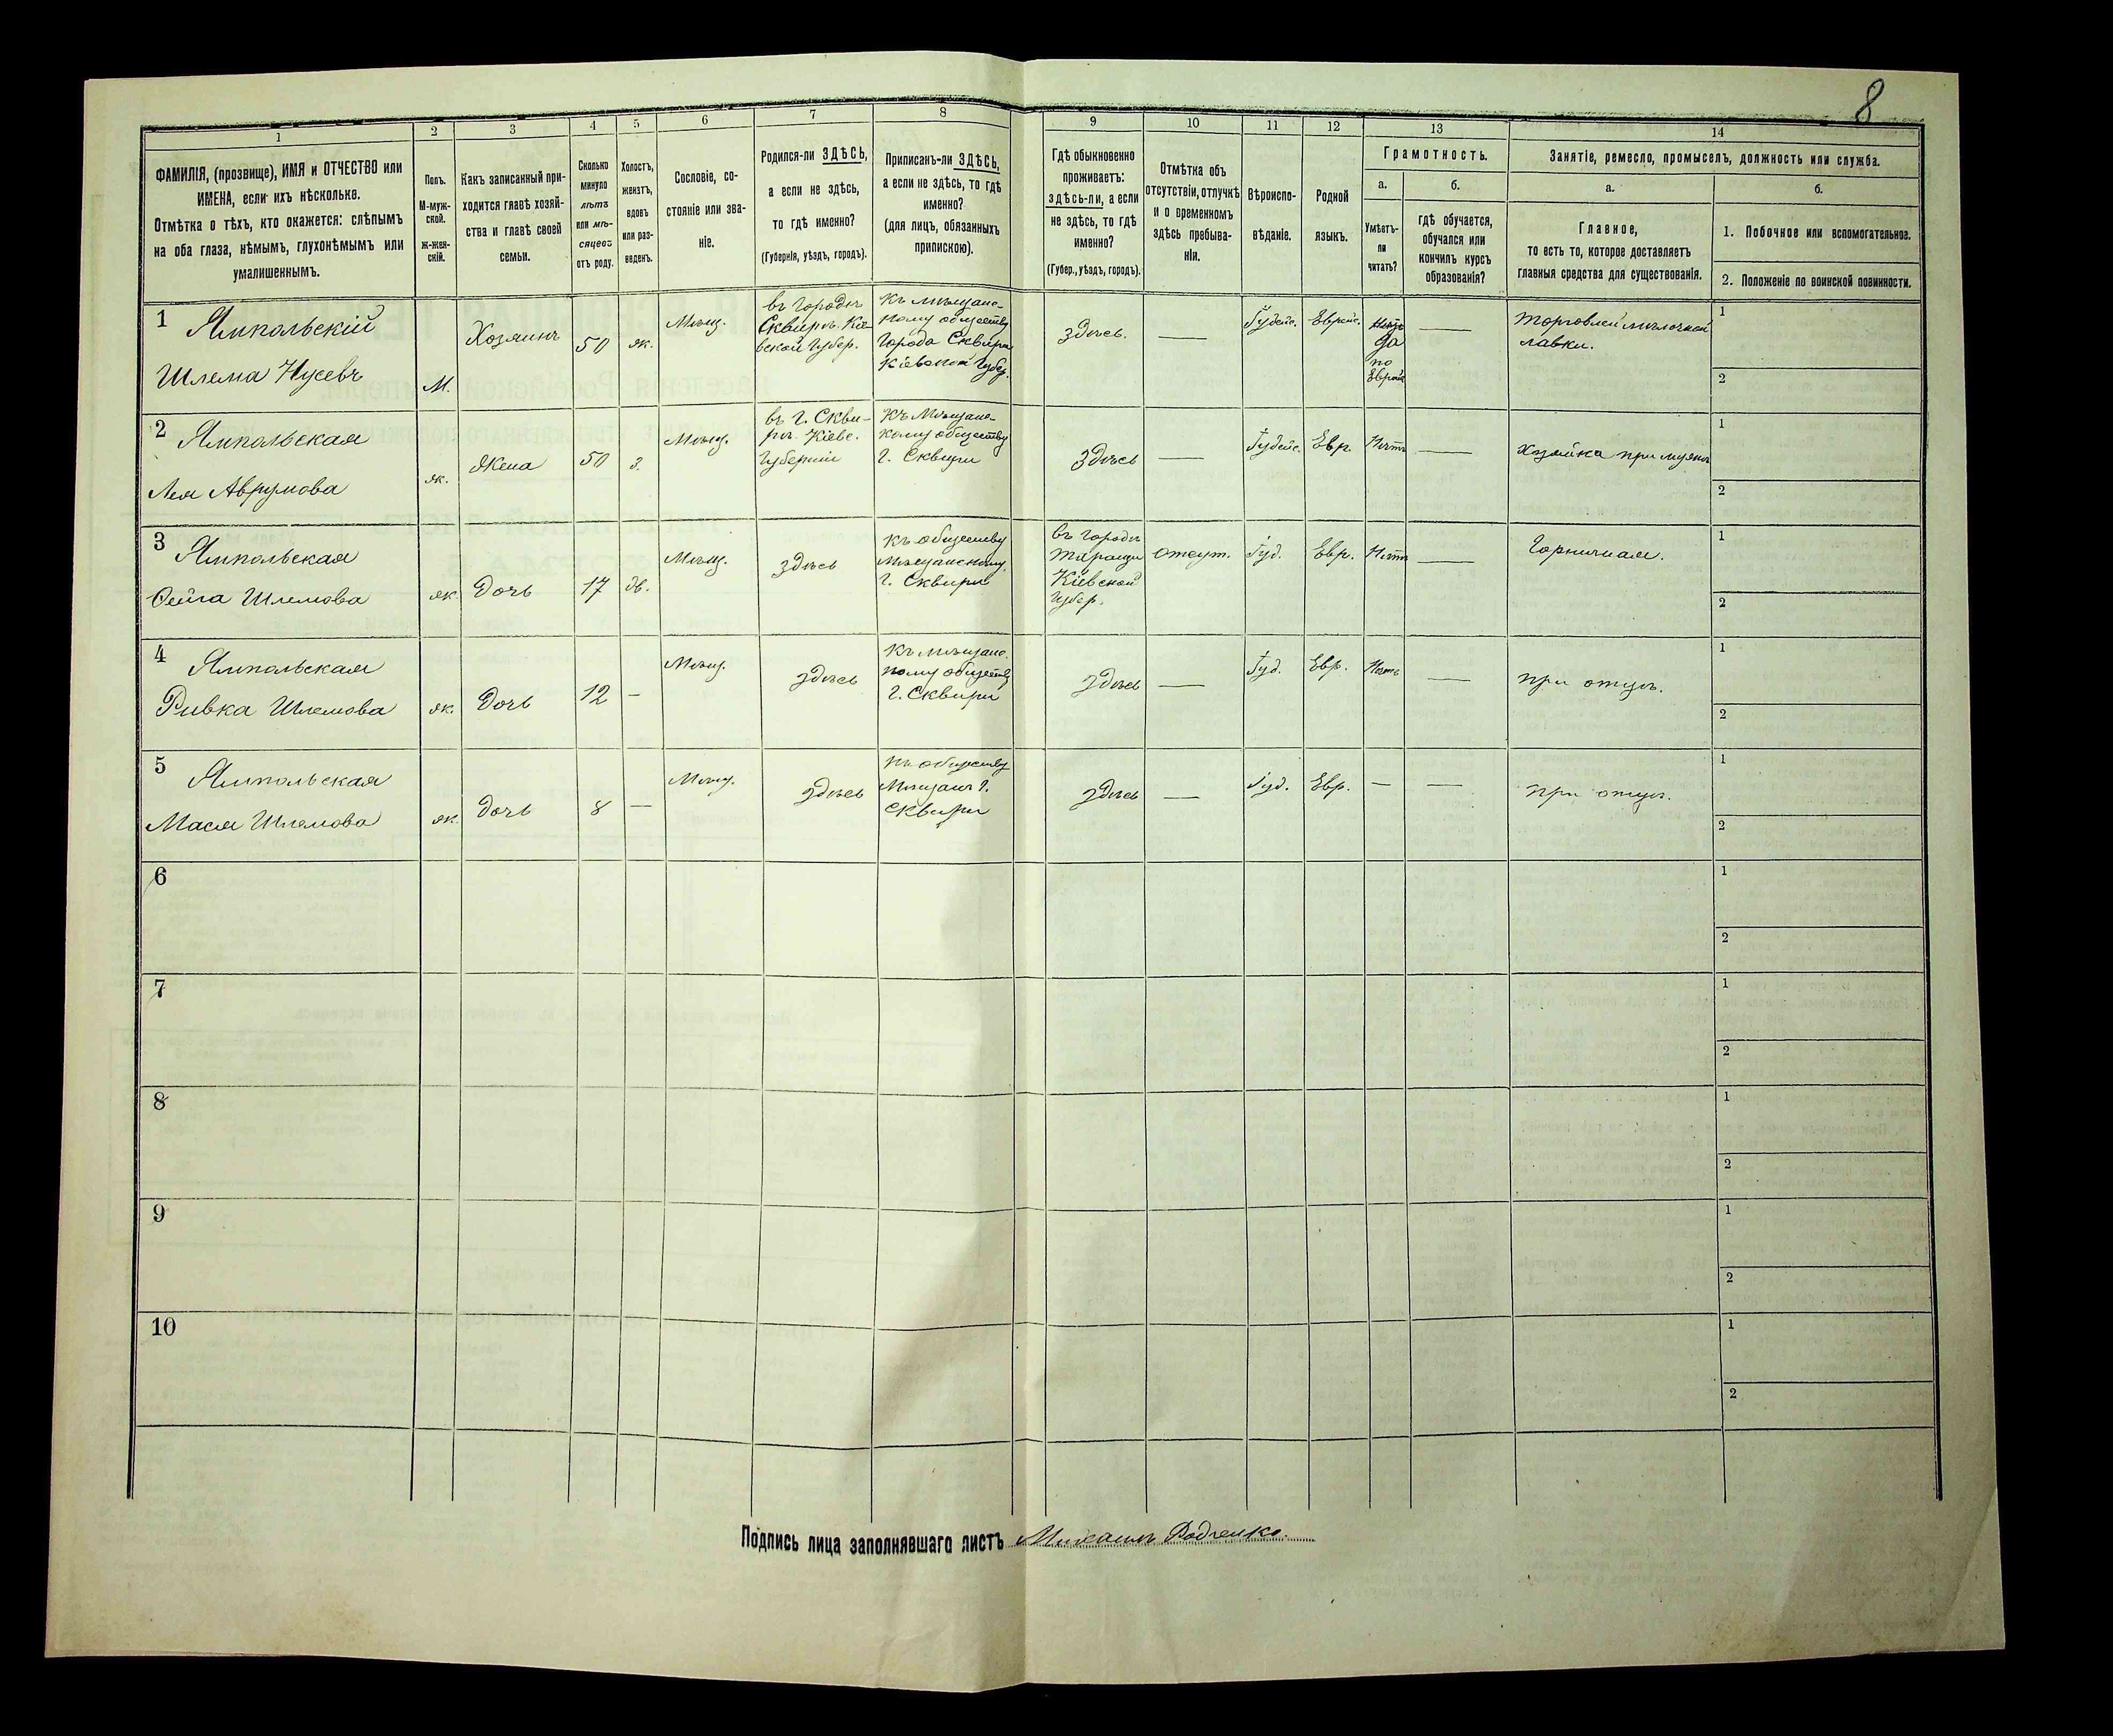 8
1
2
3
4
5
6
7
8
9
10
11
12
13
14
ФАМИЛІЯ, (прозвище), ИМЯ и ОТЧЕСТВО или
ИМЕНА, если ихъ нѣсколько.
Отмѣтка о тѣхъ, кто окажется: слѣпымъ
на оба глаза, нѣмымъ, глухонѣмымъ или
умалишеннымъ.
Полъ.
М-муж-
ской.
ж-жен-
скій.
Какъ записанный при-
ходится главѣ хозяй-
ства и главѣ своей
семьи.
Сколько
минуло
лѣтъ
или мѣ-
сяцевъ
отъ роду.
Холостъ,
женатъ,
вдовъ
или раз-
веденъ.
Сословіе, со-
стояніе или зва-
ніе.
Родился-ли ЗДѢСЬ,
а если не здѣсь,
то гдѣ именно?
(Губернія, уѣздъ, городъ).
Приписанъ-ли ЗДѢСЬ,
а если не здѣсь, то гдѣ
именно?
(для лицъ, обязанныхъ
припискою).
Гдѣ обыкновенно
проживаетъ:
здѣсь-ли, а если
не здѣсь, то гдѣ
именно?
(Губер., уѣздъ, городъ).
Отмѣтка объ
отсутствіи, отлучкѣ
и о временномъ
здѣсь пребыва-
ніи.
Вѣроиспо-
вѣданіе.
Родной
языкъ.
Грамотность.
а.
Умѣетъ-
ли
читать?
б.
гдѣ обучается,
обучался или
кончилъ курсъ
образованія?
Занятіе, ремесло, промыселъ, должность или служба.
а.
Главное,
то есть то, которое доставляетъ
главныя средства для существованія.
б.
1. Побочное или вспомогательное.
2. Положеніе по воинской повинности.
1
Ямпольскій
Шлема Нусевъ
М.
Хозяинъ
50
ж.
Мѣщ.
въ городѣ
Сквирѣ. Кіе-
вской Губер.
Къ мѣщанс-
кому обществу
города Сквиры
Кіевской Губер.
здѣсь.
—
Іудейс.
Еврейс.
Да
по
Еврейс
—
Торговлей мѣлочной
лавки.
1
2
2
Ямпольская
Лея Аврумова
ж.
Жена
50
з.
Мѣщ.
въ г. Скви-
рѣ. Кіевс.
Губерніи
Къ Мѣщанс-
кому обществу
г. Сквиры
здѣсь
—
Іудейс.
Евр.
Нѣтъ
—
Хозяйка при мужѣ
1
2
3
Ямпольская
Фейга Шлемова
ж.
Дочь
17
дв.
Мѣщ.
здѣсь
къ обществу
Мѣщанскому
г. Сквиры
въ городѣ
Таращи
Кіевской
Губер.
отсут.
Іуд.
Евр.
Нѣтъ
—
Горничная.
1
2
4
Ямпольская
Ривка Шлемова
ж.
Дочь
12
—
Мѣщ.
здѣсь
Къ мѣщанс.
кому обществу
г. Сквиры
здѣсь
—
Іуд.
Евр.
Нѣтъ
—
при отцѣ.
1
2
5
Ямпольская
Мася Шлемова
ж.
дочь
8
—
Мѣщ.
здѣсь
къ обществу
Мѣщанъ г.
Сквиры
здѣсь
—
Іуд.
Евр.
—
—
при отцѣ.
1
2
6
1
2
7
1
2
8
1
2
9
1
2
10
1
2
Подпись лица заполнявшаго листъ Михаилъ Радченко.